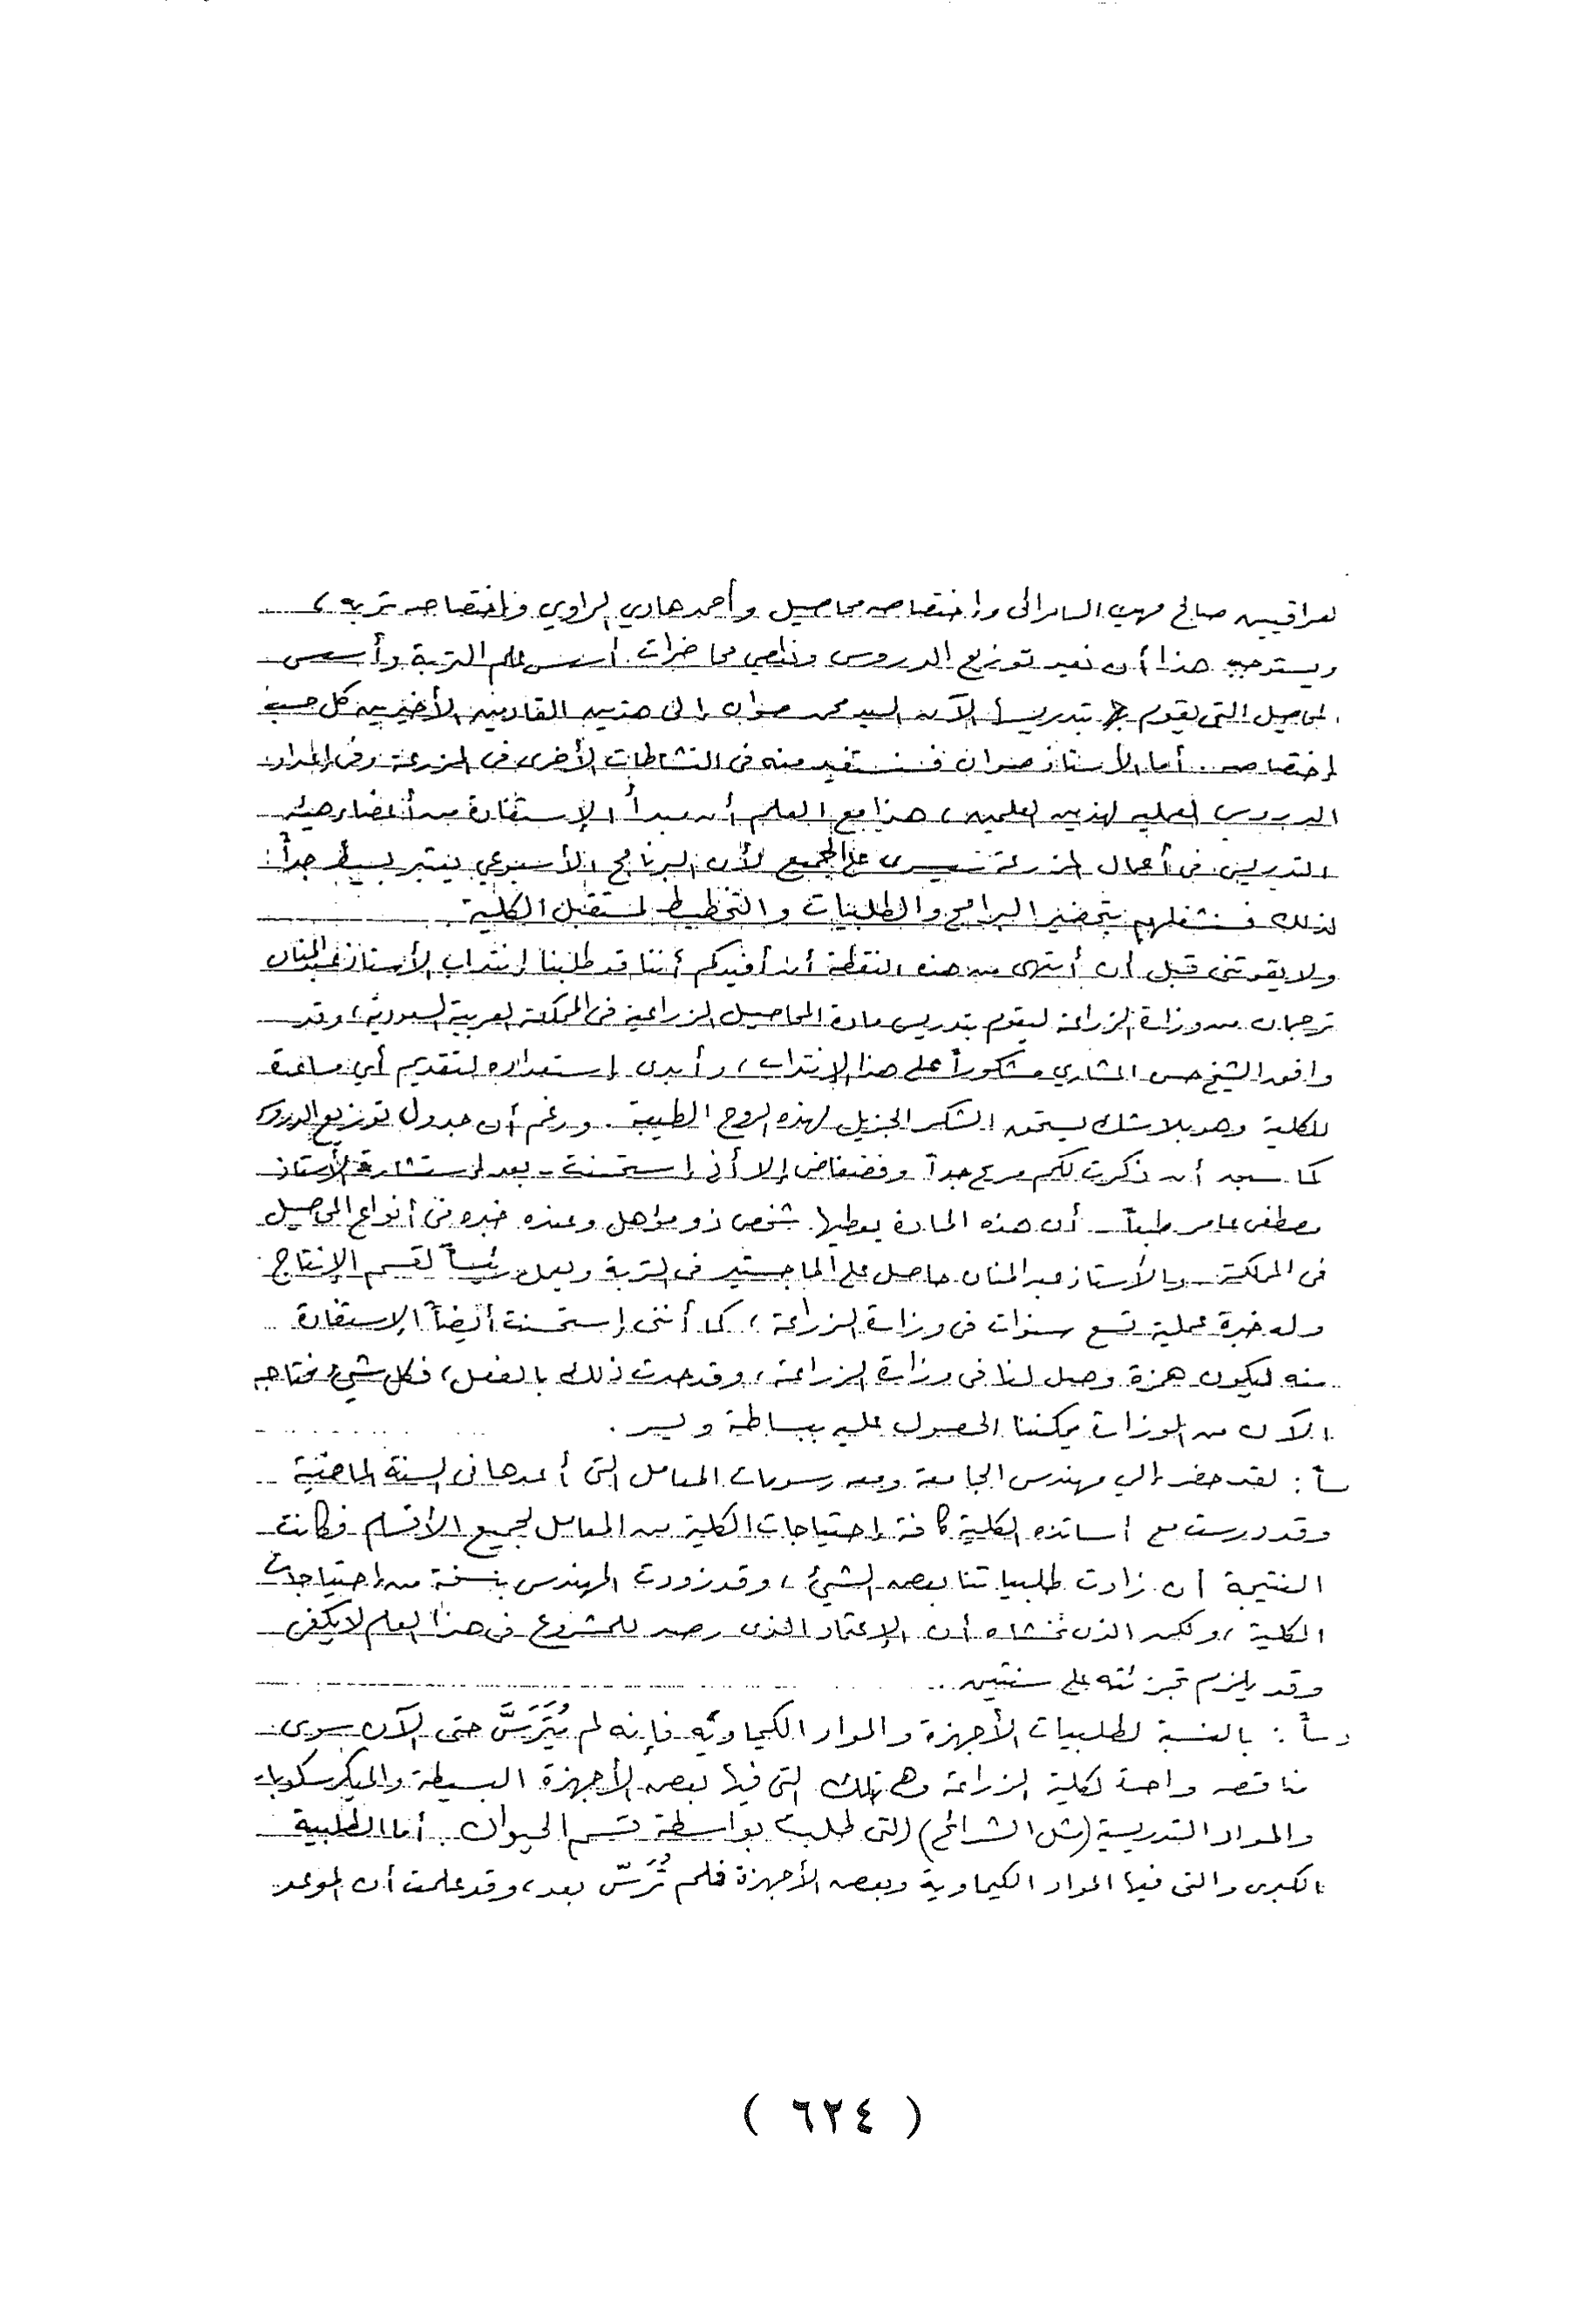 لعراقيين صالح مهدي السامرائى واختصاصه محاصيل وأحمد هادي الراوي واختصاصه تربه ،
ويستوجب هذا أن نعيد توزيع الدروس ونلغي محاضرات أسس علم التربة وأسس
المحاصيل التى يقوم بتدريسها الآن السيد محمد صوان إلى هذين القادمين الأخيرين كل حسب
إختصاصه . أما الأستاذ صوان فنستفيد منه فى النشاطات الأخرى فى المزرعة وفى إعداد
الدروس العمليه لهذين العلمين ، هذا مع العلم أن مبدأ الإستفادة من أعضاء هيئة
التدريس فى أعمال المزرعة يسرى على الجميع لأن البرنامج الأسبوعي يعتبر بسيط جداً :
لذلك فنشغلهم بتحضير البرامج والطلبيات والتخطيط لمستقبل الكلية .
ولا يفوتنى قبل أن أنتهى من هذه النقطة أن أفيدكم أننا قد طلبنا إنتداب الأستاذ عبدالمنان
ترجمان من وزارة الزراعة ليقوم بتدريس مادة المحاصيل الزراعية فى المملكة العربية السعودية ، وقد
وافق الشيخ حسن المشاري مشكوراً على هذا الإنتداب ، وأبدى إستعداده لتقديم أي مساعدة
للكلية وهو بلا شك يستحق الشكر الجزيل لهذه الروح الطيبة . ورغم أن جدول توزيع الدروس
كما سبق أن ذكرت لكم مريح جداً وفضفاض إلا أنى إستحسنت - بعد إستشارة الأستاذ
مصطفى عامر طبعاً - أن هذه المادة يعطيها شخص ذو مؤهل وعنده خبره فى أنواع المحاصيل
فى المملكة . والأستاذ عبدالمنان حاصل على الماجستير فى التربة ويعمل رئيساً لقسم الإنتاج
وله خبرة عملية تسع سنوات فى وزارة الزراعة ، كما أننى إستحسنت أيضاً الإستفادة
منه ليكون همزة وصل لنا فى وزارة الزراعة ، وقد حدث ذلك بالفعل ، فكل شيء نحتاجه
الآن من الوزارة يمكننا الحصول عليه ببساطة ويسر .
: لقد حضر إلي مهندس الجامعة ومعه رسومات المعامل التى أعدها فى السنة الماضية
وقد درست مع أساتذه الكلية كافة إحتياجات الكلية من المعامل لجميع الأقسام فكانت
النتيجة أن زادت طلبياتنا بعض الشيئ ، وقد زودت المهندس بنسخة من إحتياجات
الكلية ، ولكن الذى نخشاه أن الإعتماد الذى رصد للمشروع فى هذا العام لا يكفى
وقد يلزم تجزئته على سنتين ..
: بالنسبة لطلبيات الأجهزة والمواد الكيماويه فإنه لم يُتَرَسَّ حتى الآن سوى
مناقصه واحدة لكلية الزراعة وهى تلك التى فيها بعض الأجهزة البسيطة والميكرسكوبات
والمواد التدريسية (مثل الشرائح) التى طلبت بواسطة قسم الحيوان . أما الطلبية
الكبرى والتى فيها المواد الكيماوية وبعض الأجهزة فلم تُرَسّ بعد ، وقد علمت أن الموعد
( ٦٢٤ )